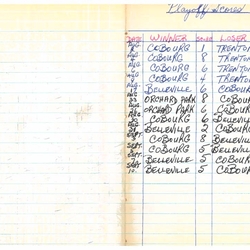 Playoff Scores
DATE WINNER SCORE LOSER
AUG COBOURG 1 TRENTON
AUG 4 COBOURG 8 TRENTON
AUG COBOURG 6 TRENTON
AUG 9 COBOURG 4 TRENTON
AUG BELLEVILLE 6 COBOURG
AUG 23 ORCHARD PARK 8 COBOUR
AUG ORCHARD PARK 6 COBOU
AUG 30 COBOURG 6 BELLEVIL
AUG 31 BELLEVILLE 2 COBOUR
SEPT COBOURG 8 BELLEVIL
SEPT COBOURG 5 BELLEVILL
SEPT BELLEVILLE 5 COBOU
SEPT 10 BELLEVILLE 5 COBOU